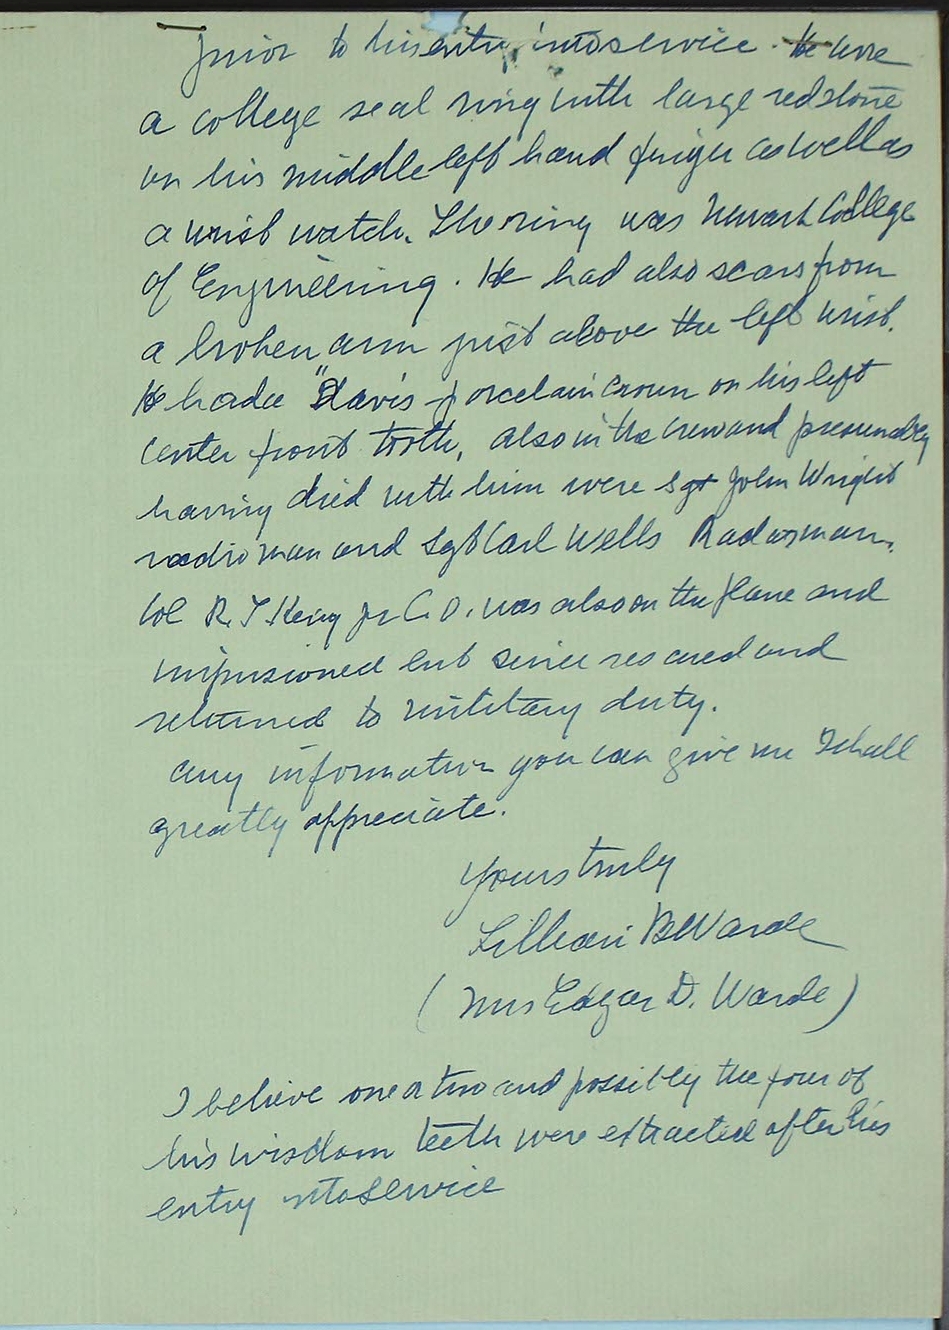 prior to his entry into service. He wore
a college seal ring with large red stone
on his middle left hand finger as well as
a wrist watch. The ring was Newark College
of Engineering. He had also scars from
a broken arm just above the left wrist.
He had a "Davis porcelain crown on his left
center front tooth, also in the crew and presumably
having died with him were Sgt John Wright
radio man and Sgt Carl Wells Radarman.
Col R. T King Jr C.O. was also on the plane and
imprisoned but since rescued and
returned to military duty.
any information you can give me I shall
greatly appreciate.
Yours truly
Lillian B Warde
(Mrs Edgar D. Warde)
I believe one or two and possibly the four of
his wisdom teeth were extracted after his
entry into service